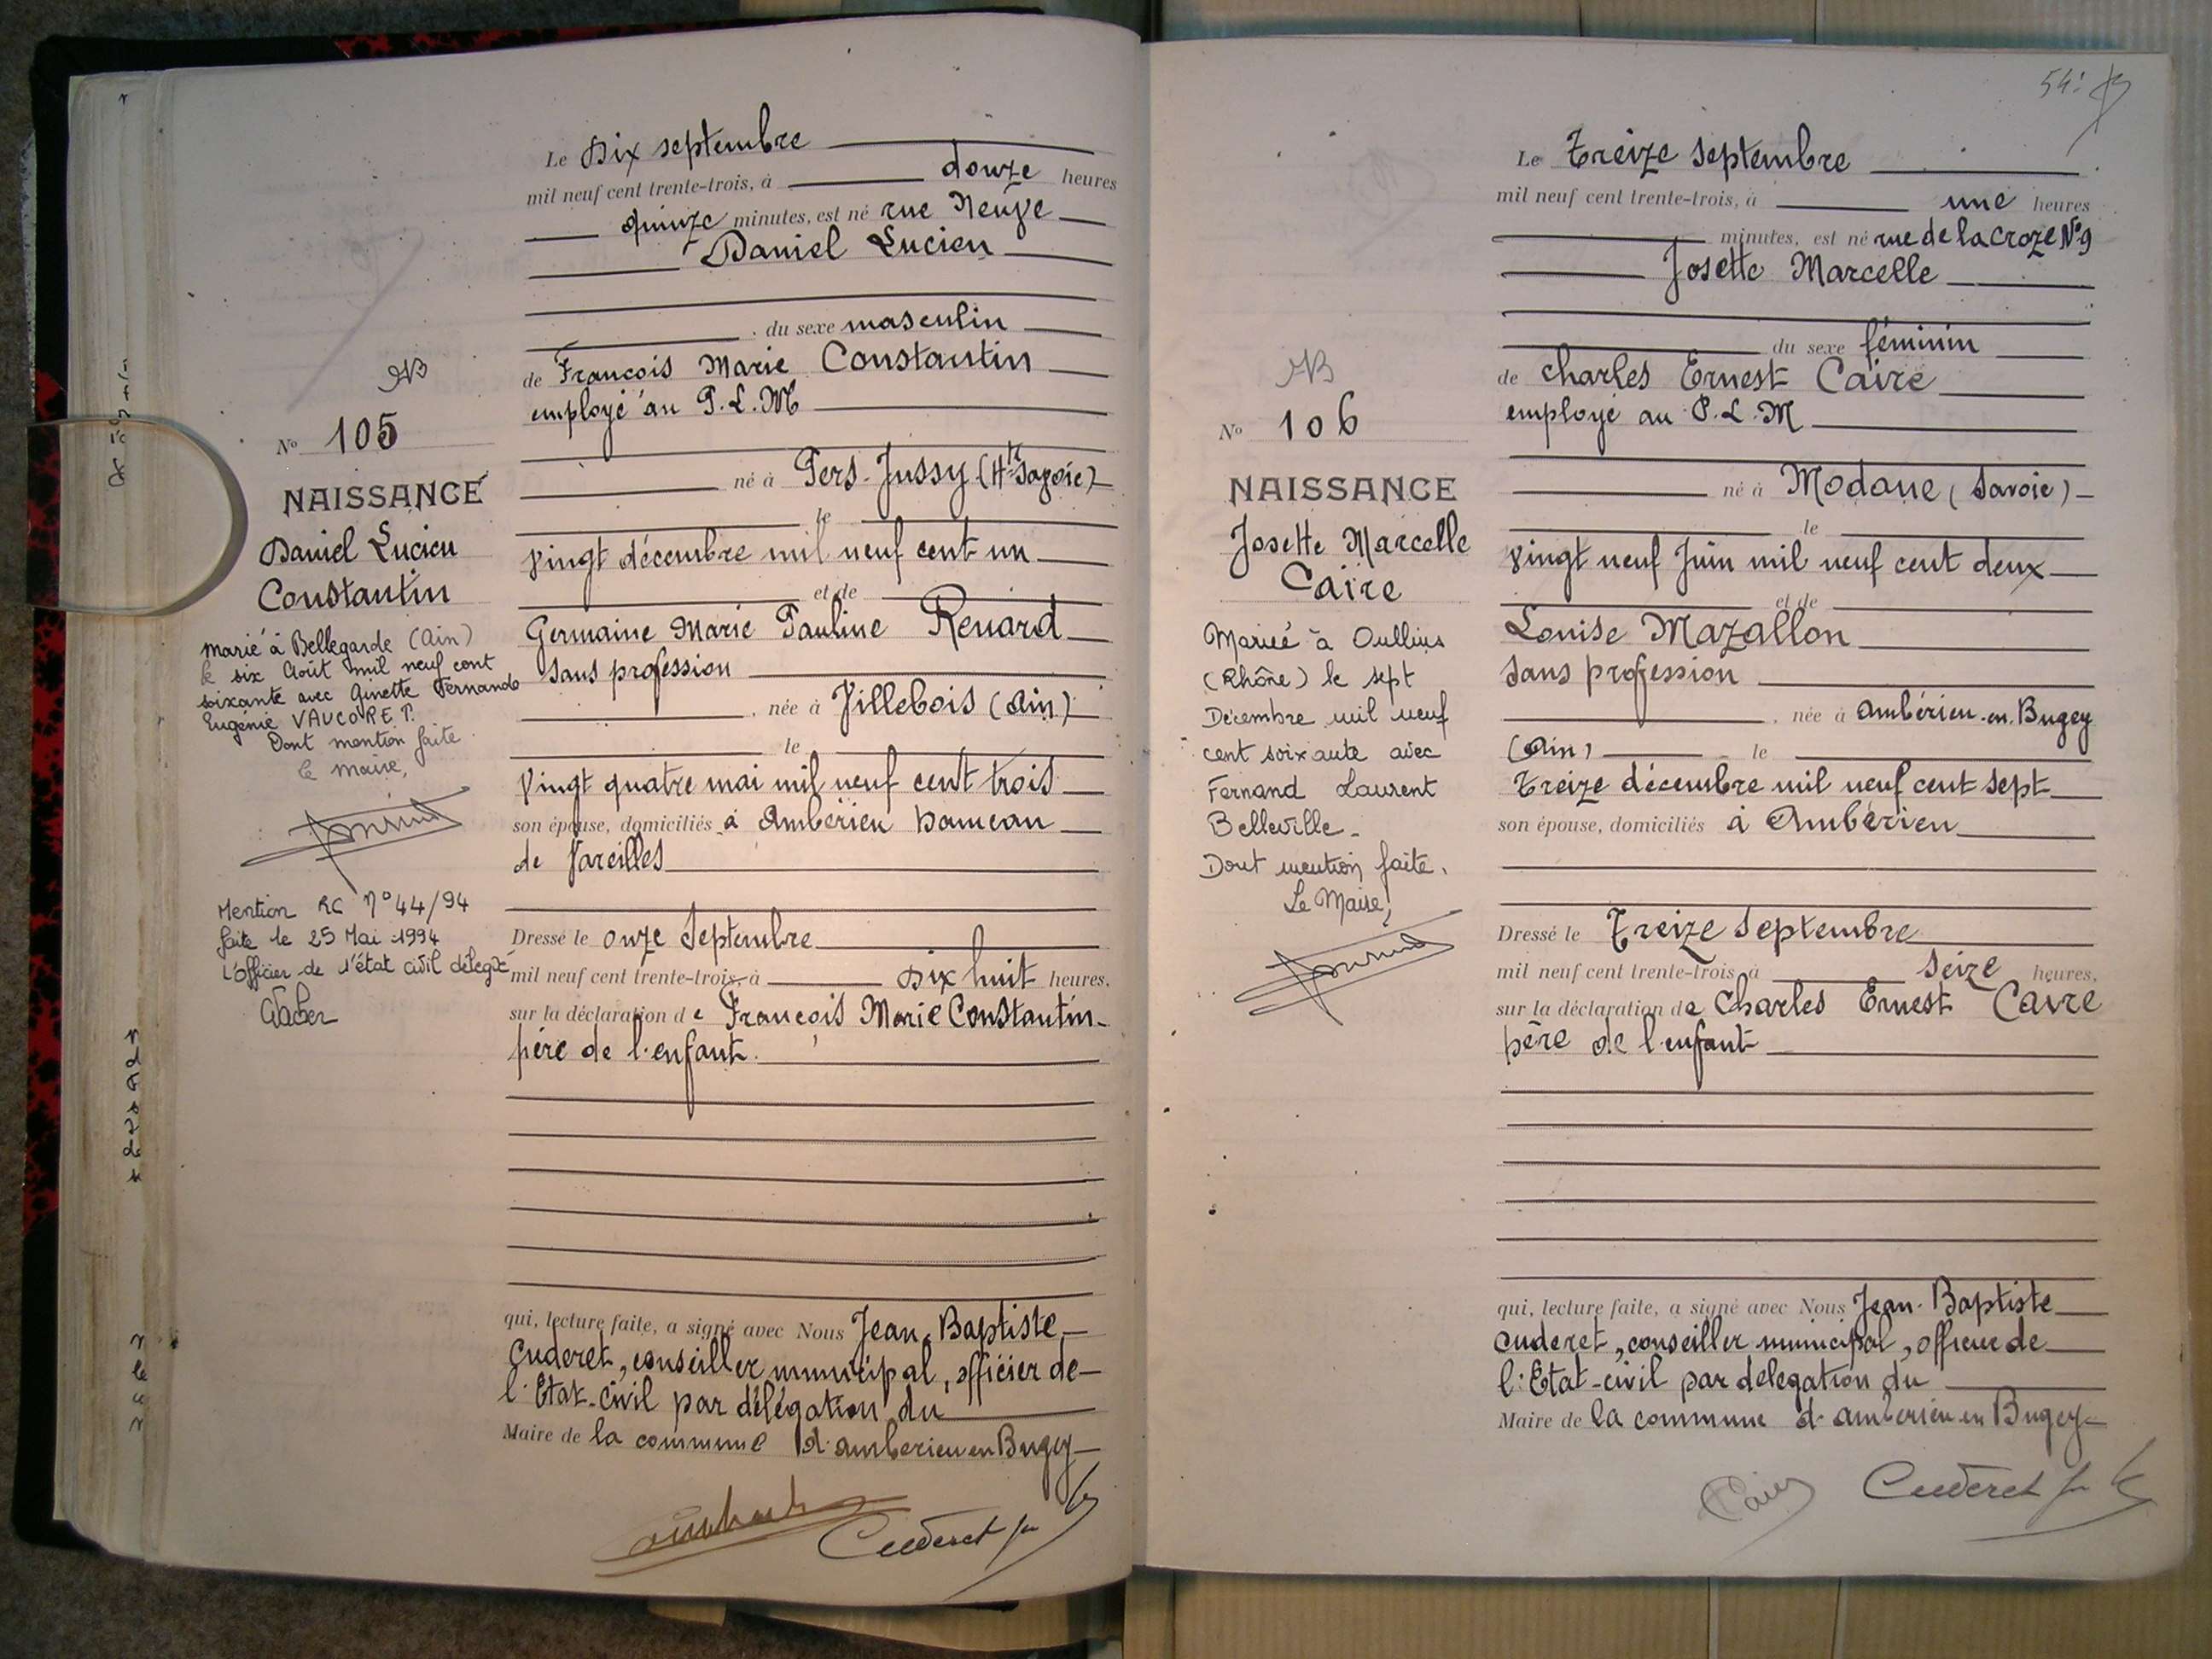 Le Dix septembre
mil neuf cent trente-trois, à douze heures
quinze minutes, est né rue Neuve
Daniel Lucien
du sexe masculin
de François Marie Constantin
employé au P.L.M
né à Pers-Jussy (Hte Savoie)
le
vingt décembre mil neuf cent un
et de
Germaine Marie Pauline Renard
sans profession
, née à Villebois (Ain)
le
vingt quatre mai mil neuf cent trois
son épouse, domiciliés à Ambérieu hameau
de Vareilles
Dressé le onze Septembre
mil neuf cent trente-trois, à Dix huit heures,
sur la déclaration de François Marie Constantin
père de l'enfant.
qui, lecture faite, a signé avec Nous Jean-Baptiste
Cuderet, conseiller municipal, officier de
l'Etat-civil par délégation du
Maire de la commune d'ambérieu en Bugey
Cuderet
N° 105
NAISSANCE
Daniel Lucien
Constantin
Marié à Bellegarde (Ain)
le six Août mil neuf cent
soixante avec Ginette Fernande
Eugénie VAUCORET.
Dont mention faite
le maire,
Mention RC N° 44/94
faite le 25 Mai 1994
L'officier de l'état civil délégué
54
Le Treize septembre
mil neuf cent trente-trois, à une heures
minutes, est né rue de la Croze N°9
Josette Marcelle
du sexe féminin
de Charles Ernest Caire
employé au P.L.M
né à Modane (Savoie)
le
vingt neuf Juin mil neuf cent deux
et de
Louise Mazallon
sans profession
, née à Ambérieu-en-Bugey
(Ain) le
treize décembre mil neuf cent sept
son épouse, domiciliés à Ambérieu
Dressé le Treize septembre
mil neuf cent trente-trois, à seize heures,
sur la déclaration de Charles Ernest Caire
père de l'enfant
qui, lecture faite, a signé avec Nous Jean-Baptiste
Cuderet, conseiller municipal, officier de
l'Etat-civil par delegation du
Maire de la commune d'ambérieu en Bugey
Caire Cuderet
N° 106
NAISSANCE
Josette Marcelle
Caire
Mariée à Oullins
(Rhône) le sept
Décembre mil neuf
cent soixante avec
Fernand Laurent
Belleville.
Dont mention faite.
Le Maire,